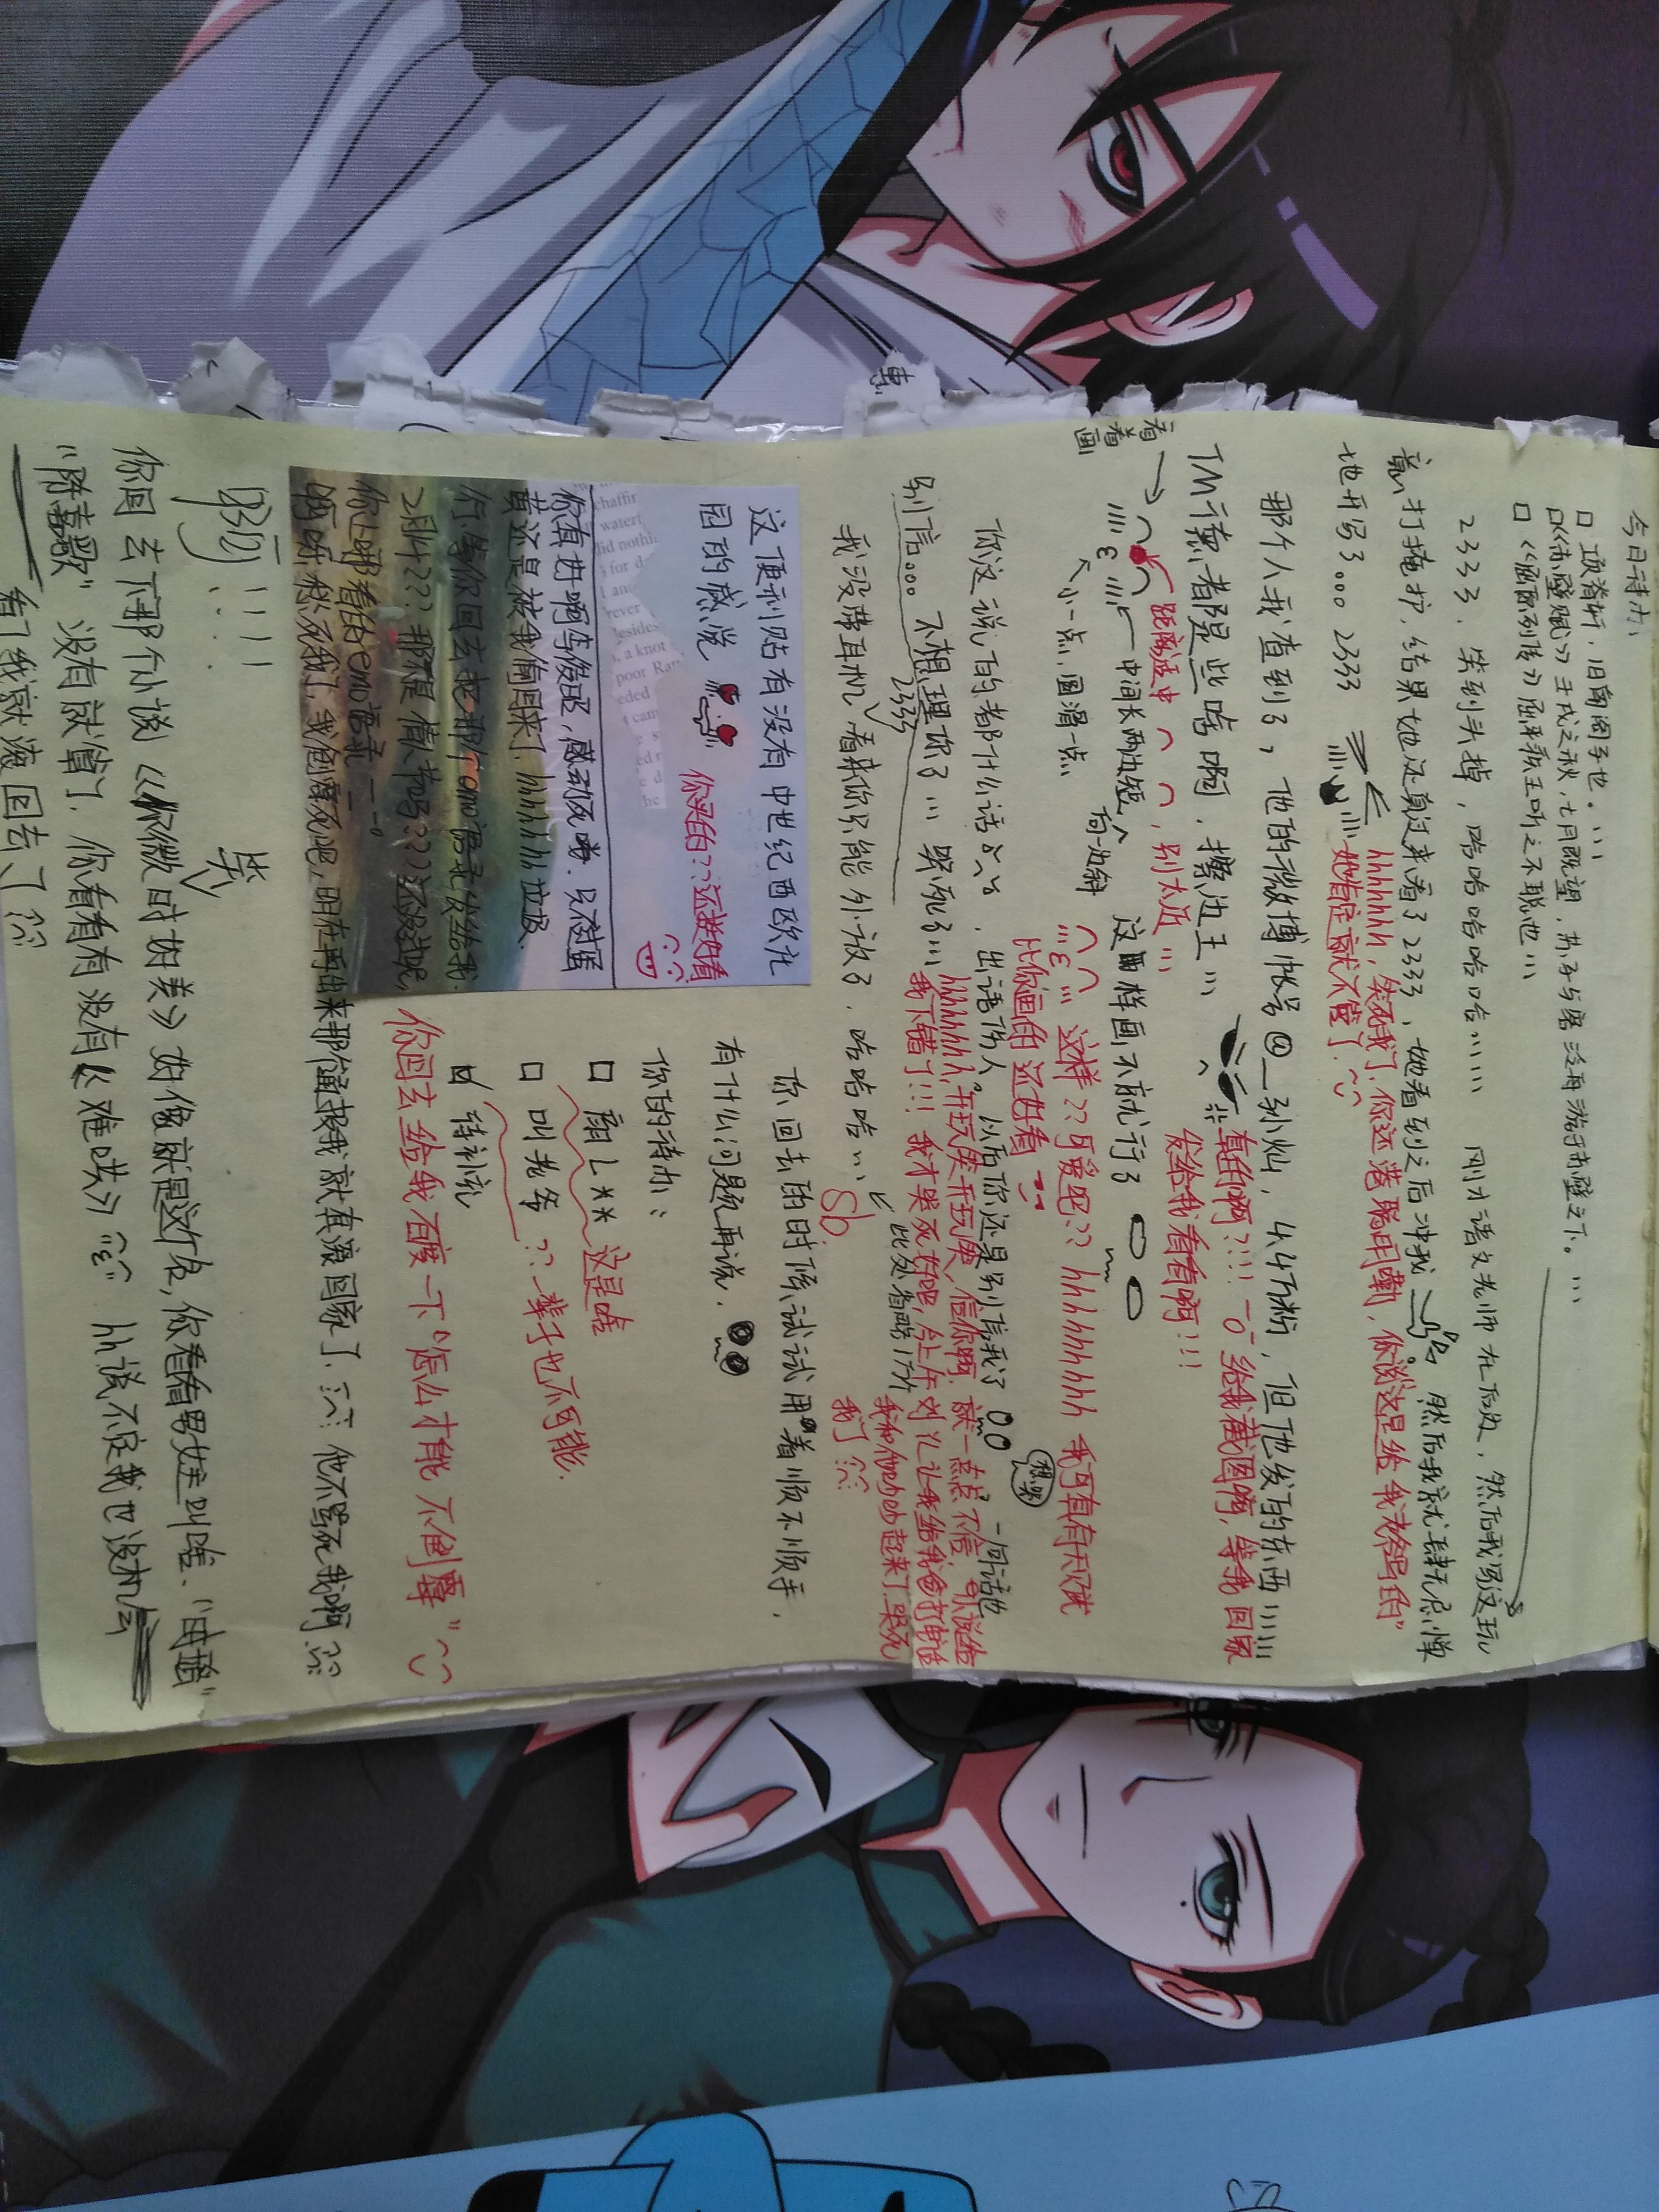 今日待办:
□ 项脊轩，旧南阁子也。...
□《赤壁赋》壬戌之秋,七月既望,苏子与客泛舟游于赤壁之下。...
□《屈原列传》屈平疾王听之不聪也...
2333，笑到头掉，哈哈哈哈哈...... 刚才语文老师在后边，然后我写这玩
竟打掩护,结果她还真过来看了2333，她看到之后冲我 。然后我就肆无忌惮
地开写了。。。2333
hhhhhhh，笑死我了,你还港聪明嘞，你说"这是给我老爷写的"
她肯定就不管了.
那个人我查到了，他的微博帐号@_孙灿，4.4万粉，但他发的东西......
TM德都是些啥啊，擦边王...
真的啊?!!! 给我截图啊,等我回家
发给我看看啊!!!
看着画
距离适中 ，别太近...
中间长两边短
向一边斜
小一点，圆滑一点
这样画不就行了
这样??可爱吧?? hhhhhhhhh 我可真有天赋
比你画的还好看
想哭
你这说的都什么话 ，出语伤人。以后你还是别信我了 ，一句话也
别信。。。不想理你了... 哭死了...
hhhhhhhh,开玩笑开玩笑,信你啊,就一点点不信,
我下错了!!! 我才哭死好吧,今上午刘丫让我给我爸打电话
我和他吵吵起来了.哭死
我了
此处省略1万个
sb.
2333
我没带耳机 看来你只能外放了，哈哈哈...
这便利贴有没有中世纪西欧庄
园的感觉
你买的??还挺好看
你真好啊李俊昭,感动死嘞.只不过蛋
黄还是被我偷回来了.hhhhhhh垃圾.
行.等你回去把那个emo语录发给我.
2月14??? 那不是情人节吗???还没过呢,
你上哪看的emo语录
啊呀愁死我了,我倒霉死吧,现在再出来那个通报我就真滚回家了. 他不骂死我啊
你回去的时候试试用着顺不顺手，
有什么问题再说.
你的待办:
□ 颜L**
这是啥
□ 叫老爷
??一辈子也不可能.
☑ 待补充
你回去给我百度一下"怎么才能不倒霉"
啊!!!!
笑
你回去下那个小说《你微时好美》好像就是这个名,你看看男女主叫啥."时瑶"
"陈嘉歌" 没有就算了. 你看看有没有《难哄》 hh说不定我也没机会
看了我就滚回去了